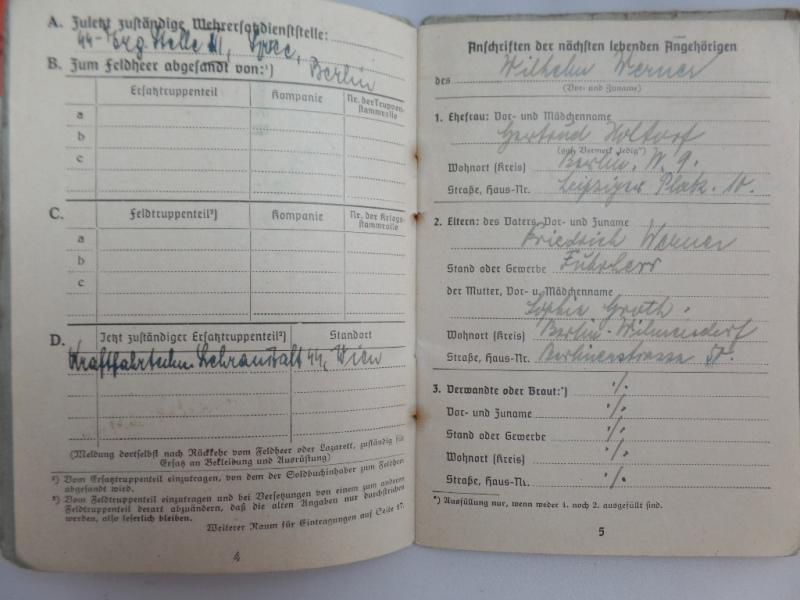 A. Zuletzt zuständige Wehrersatzdienststelle:
Erg. Stelle III, Spree, Berlin
B. Zum Feldheer abgesandt von:¹)
Ersatztruppenteil Kompanie Nr. der Truppenstammrolle
a
b
c
C. Feldtruppenteil²) Kompanie Nr. der Kriegsstammrolle
a
b
c
D. Jetzt zuständiger Ersatztruppenteil²) Standort
Kraftfahrtechn. Lehranstalt ᛋᛋ, Wien
(Meldung dortselbst nach Rückkehr vom Feldheer oder Lazarett, zuständig für
Ersatz an Bekleidung und Ausrüstung)
¹) Vom Ersatztruppenteil einzutragen, von dem der Soldbuchinhaber zum Feldheer
abgesandt wird.
²) Vom Feldtruppenteil einzutragen und bei Versetzungen von einem zum anderen
Feldtruppenteil derart abzuändern, daß die alten Angaben nur durchstrichen
werden, also leserlich bleiben.
Weiterer Raum für Eintragungen auf Seite 17.
4
Anschriften der nächsten lebenden Angehörigen
des Wilhelm Werner
(Vor- und Zuname)
1. Ehefrau: Vor- und Mädchenname
Gertrud Holtorf
(ggf. Vermerk „ledig“)
Wohnort (Kreis) Berlin, W. 9.
Straße, Haus-Nr. Leipziger Platz. 10.
2. Eltern: des Vaters, Vor- und Zuname
Friedrich Werner
Stand oder Gewerbe Fuhrherr
der Mutter, Vor- u. Mädchenname
Sophie Groth.
Wohnort (Kreis) Berlin-Wilmersdorf
Straße, Haus-Nr. Berlinerstrasse
3. Verwandte oder Braut:*) ·/.
Vor- und Zuname ·/.
Stand oder Gewerbe ·/.
Wohnort (Kreis) ·/.
Straße, Haus-Nr. ·/.
*) Ausfüllung nur, wenn weder 1. noch 2. ausgefüllt sind.
5